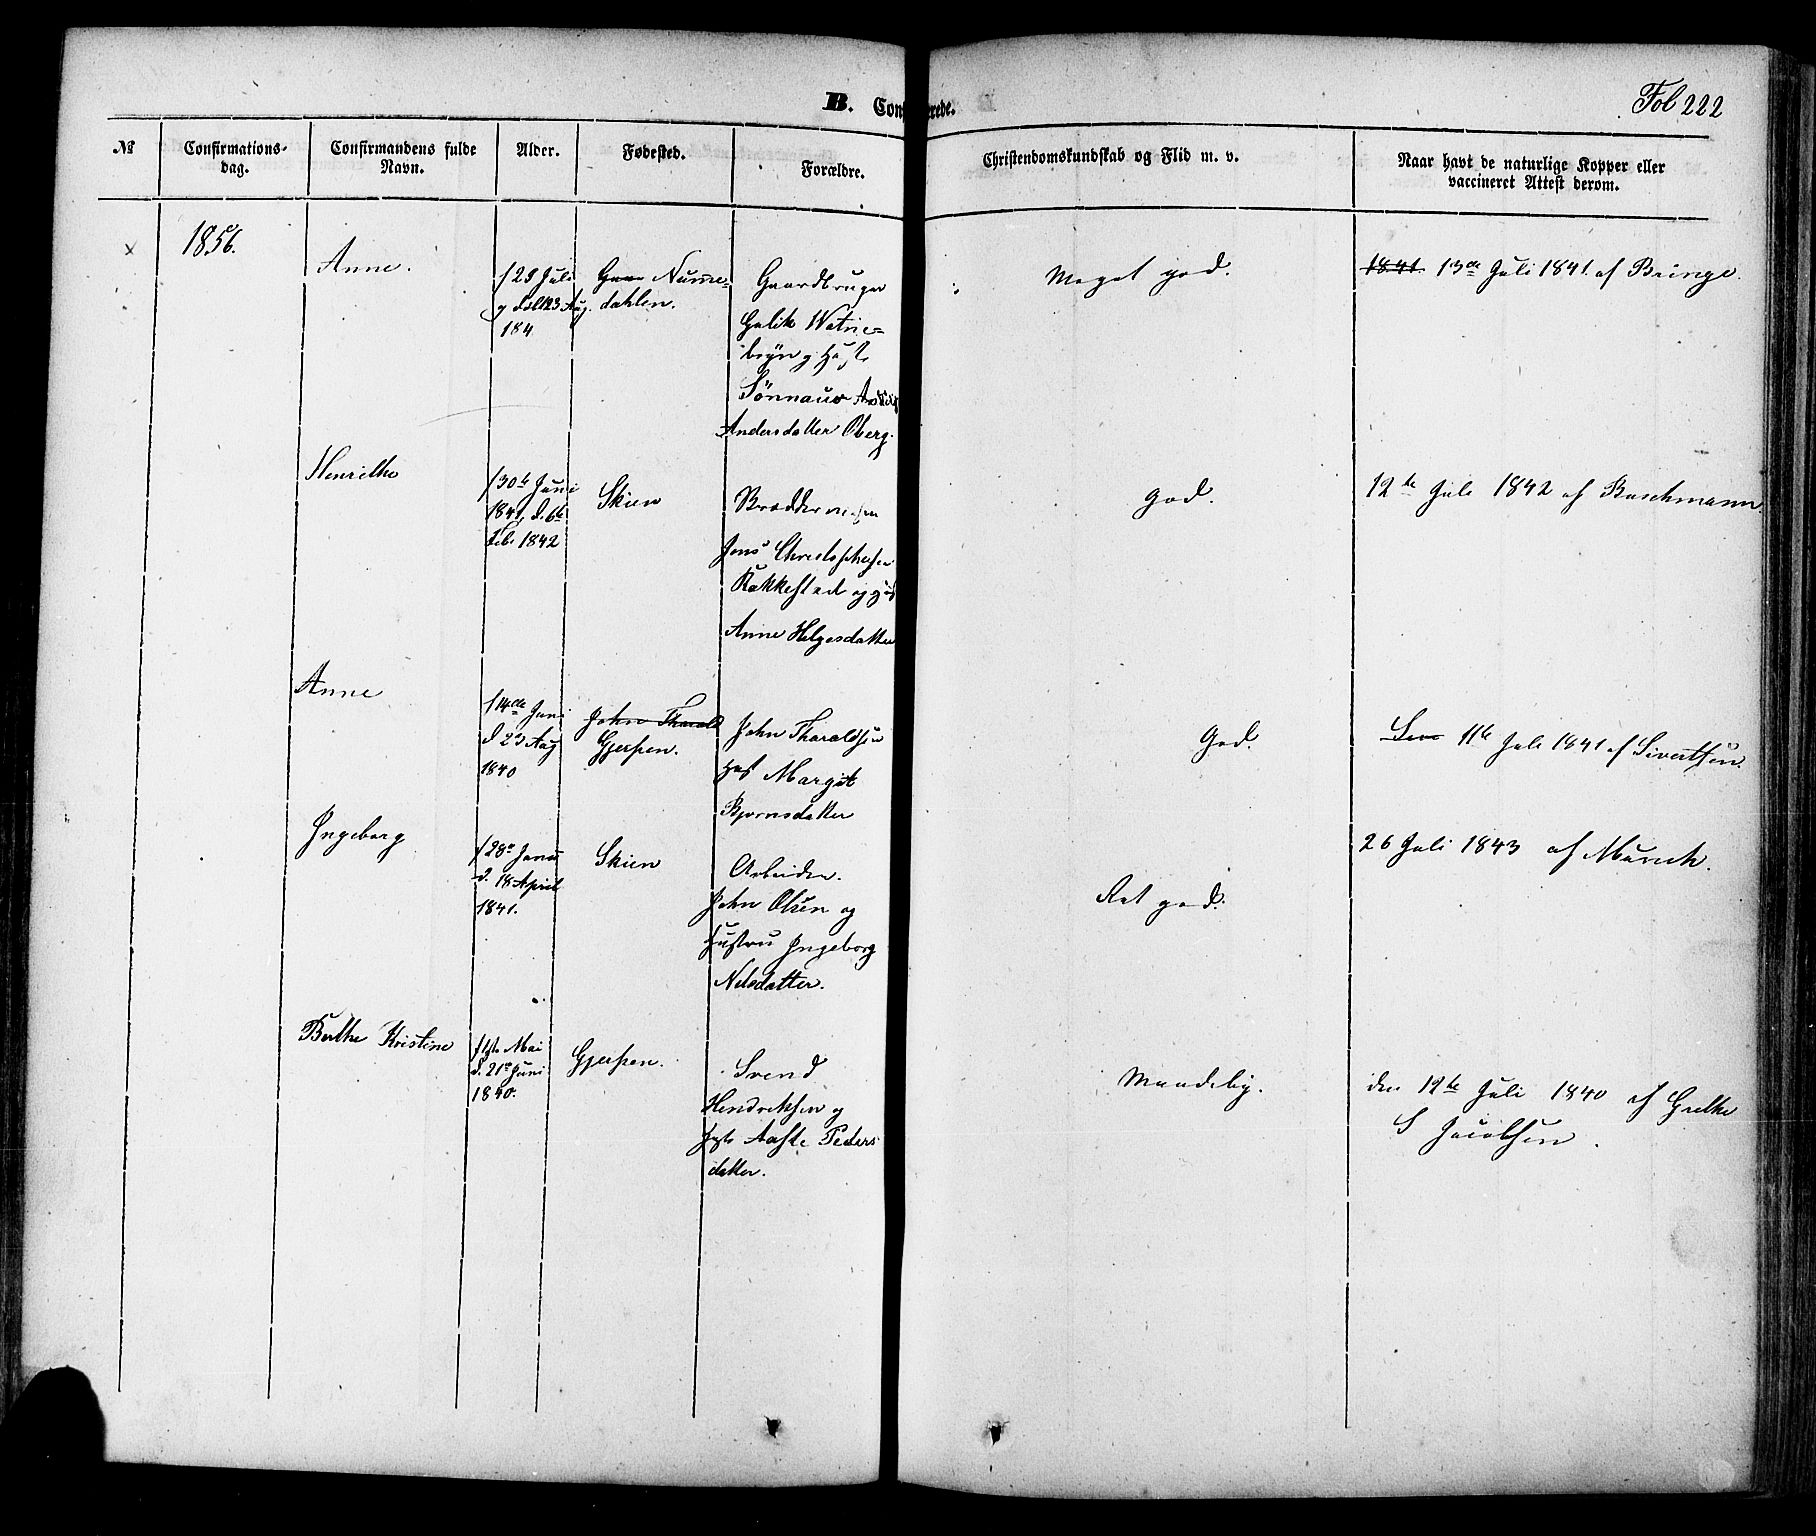 B. Confirmerede.
Fol 222
№
Confirmations-
dag.
Confirmandens fulde
Navn.
Alder.
Fødested.
Forældre.
Christendomskundskab og Flid m. v.
Naar havt de naturlige Kopper eller
vaccineret Attest derom.
x
1856.
Anne.
f 29 Juli
23 Aug.
184
Nume-
dahlen.
Gaardbruger
Gulik
Hust
Sønnauv
Andersdatter Oberg.
Meget god.
1841. 13de Juli 1841 af Bringe.
Henrithe
f 30te Juni
1841, d. 6te
Feb. 1842
Skien
Jens Christophersen
Rakkestad og
Anne Helgesdatter
god.
12te Juli 1842 af Buschmann.
Anne
f 14de Juni
d 23 Aug
1840
John Tharald
Gjerpen.
John Tharaldsen
Hust Margit
Bjørnsdatter
God.
11te Juli 1841 af Sivertsen.
Ingeborg
f 28e Janu
d. 18 April
1841.
Skien
Arbeider.
John Olsen og
Hustru Ingeborg
Nilsdatter.
Ret god.
26 Juli 1843 af Münch.
Berthe Kristine
Mai
d. 21e Juni
1840.
Gjerpen.
Svend
Hendriksen og
Aaste Peders
datter.
Maadelig.
den 12te Juli 1840 af Grethe
S Jacobsen.